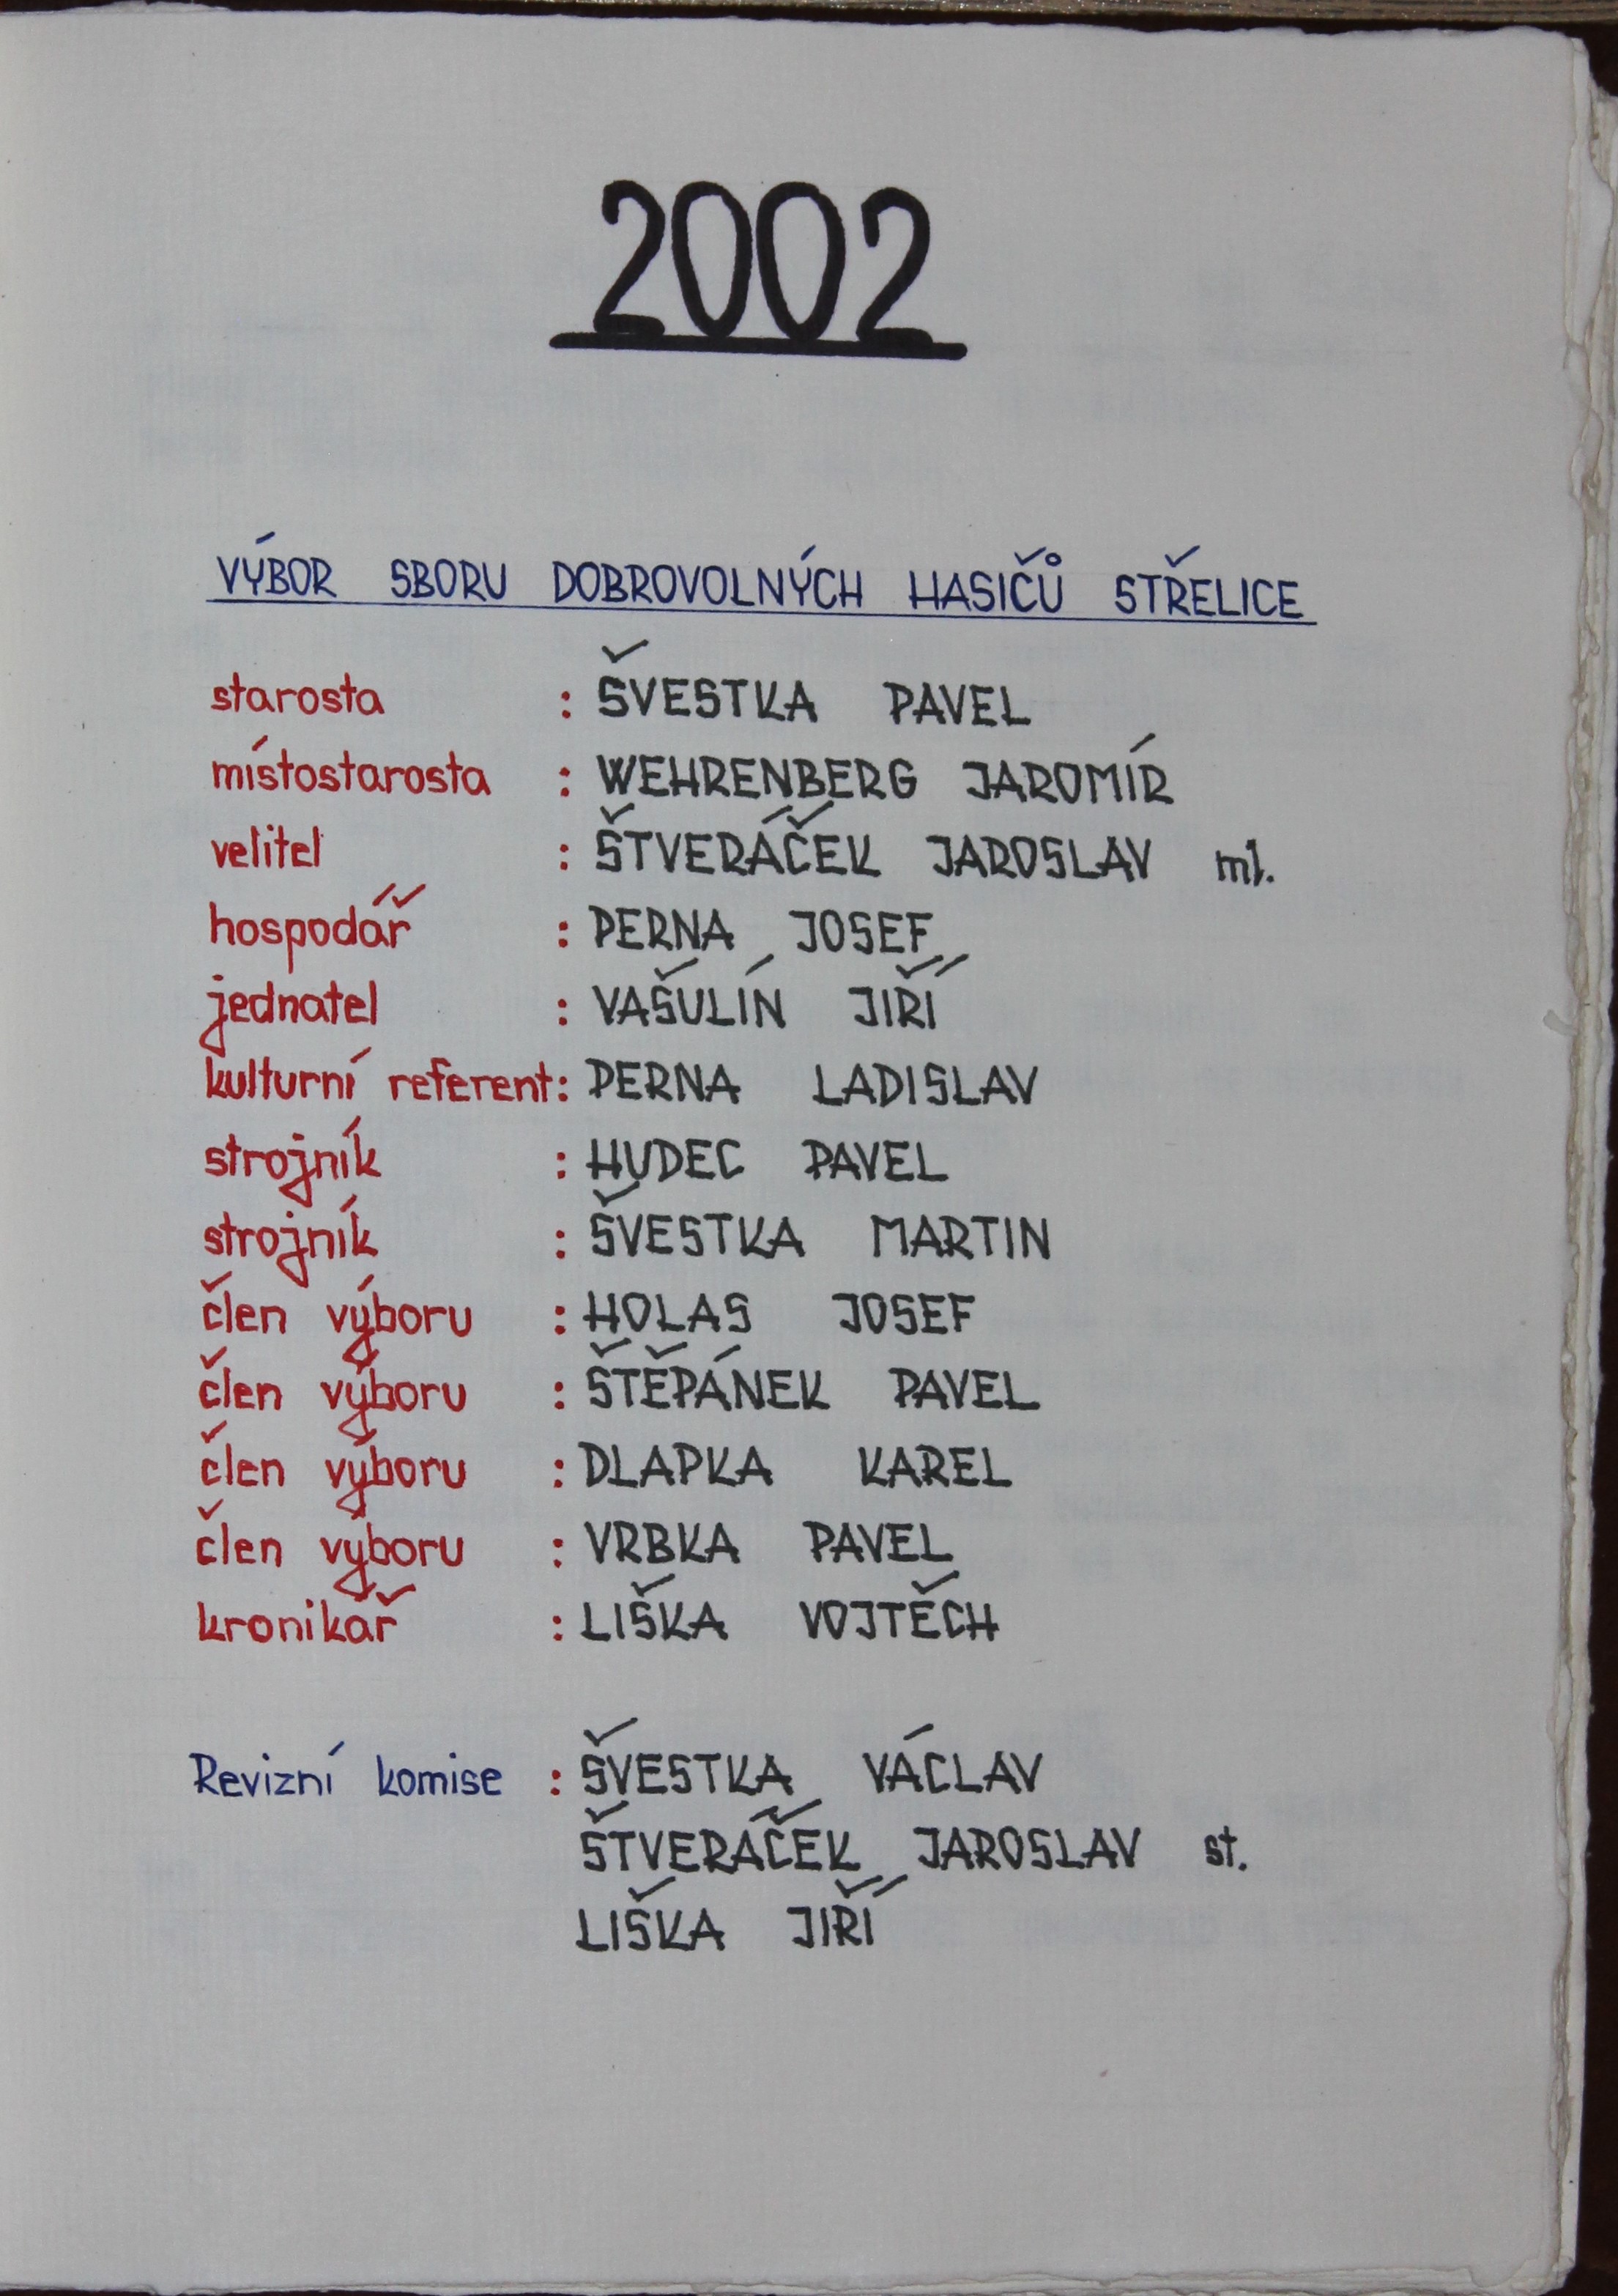 2002
VÝBOR SBORU DOBROVOLNÝCH HASIČŮ STŘELICE
starosta : ŠVESTKA PAVEL
místostarosta : WEHRENBERG JAROMÍR
velitel : ŠTVERÁČEK JAROSLAV ml.
hospodář : PERNA JOSEF
jednatel : VAŠULÍN JIŘÍ
kulturní referent: PERNA LADISLAV
strojník : HUDEC PAVEL
strojník : ŠVESTKA MARTIN
člen výboru : HOLAS JOSEF
člen výboru : ŠTĚPÁNEK PAVEL
člen výboru : DLAPKA KAREL
člen výboru : VRBKA PAVEL
kronikář : LIŠKA VOJTĚCH
Revizní komise : ŠVESTKA VÁCLAV
ŠTVERÁČEK JAROSLAV st.
LIŠKA JIŘÍ